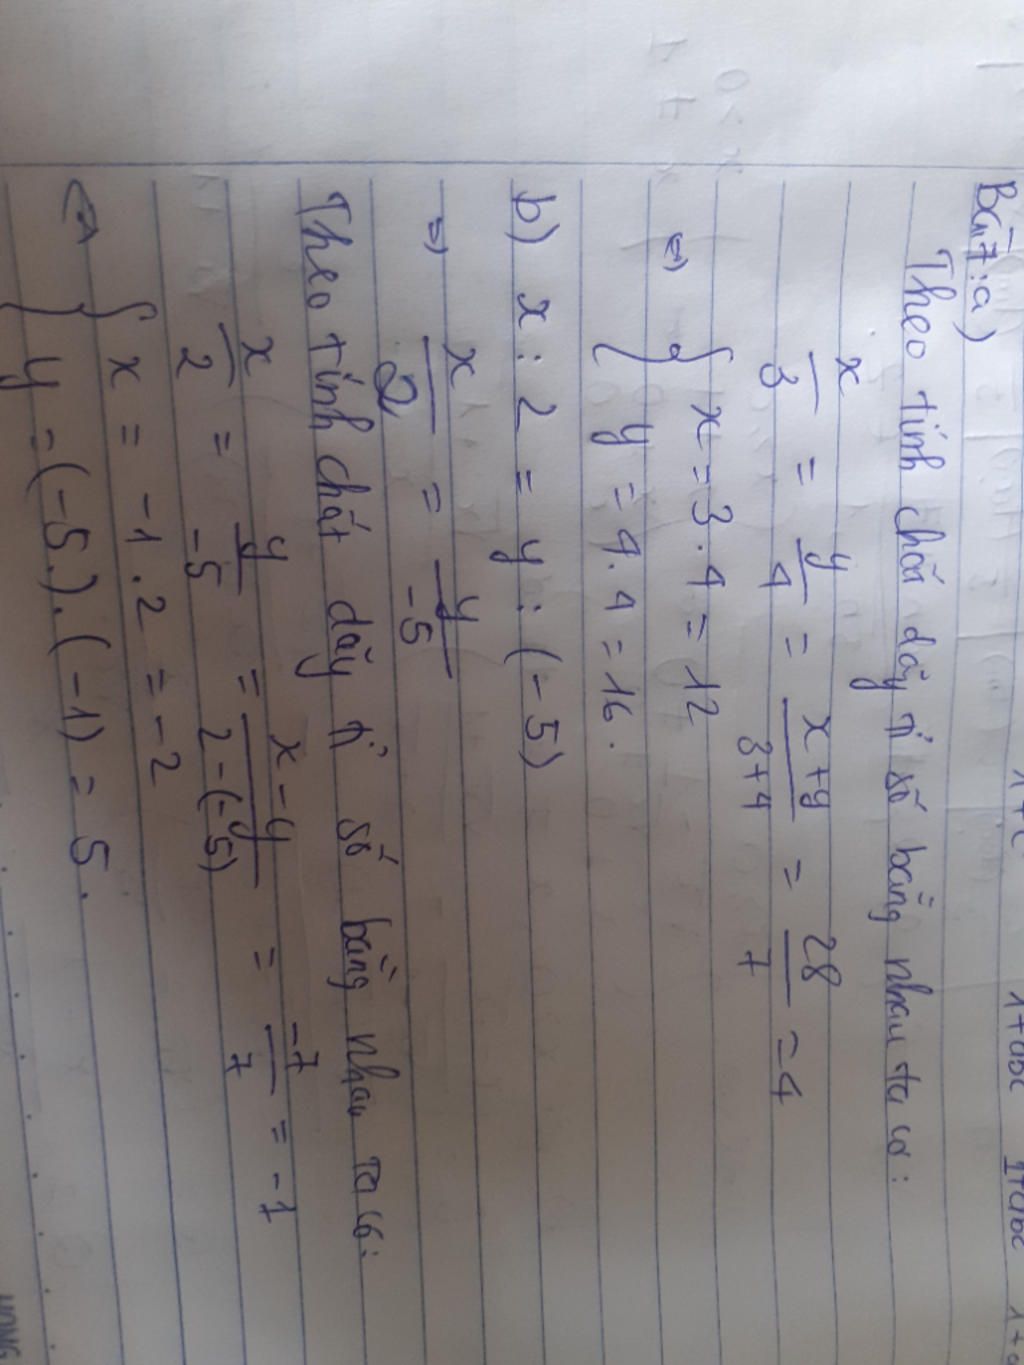 Bài 7: a)
Theo tính chất dãy tỉ số bằng nhau ta có:
x/3 = y/4 = x+y/3+4 = 28/7 = 4
=> { x = 3.4 = 12
y = 4.4 = 16.
b) x : 2 = y : (-5)
=> x/2 = y/-5
Theo tính chất dãy tỉ số bằng nhau ta có:
x/2 = y/-5 = x-y/2-(-5) = -7/7 = -1
=> { x = -1.2 = -2
y = (-5).(-1) = 5.
1+abc 1+abc